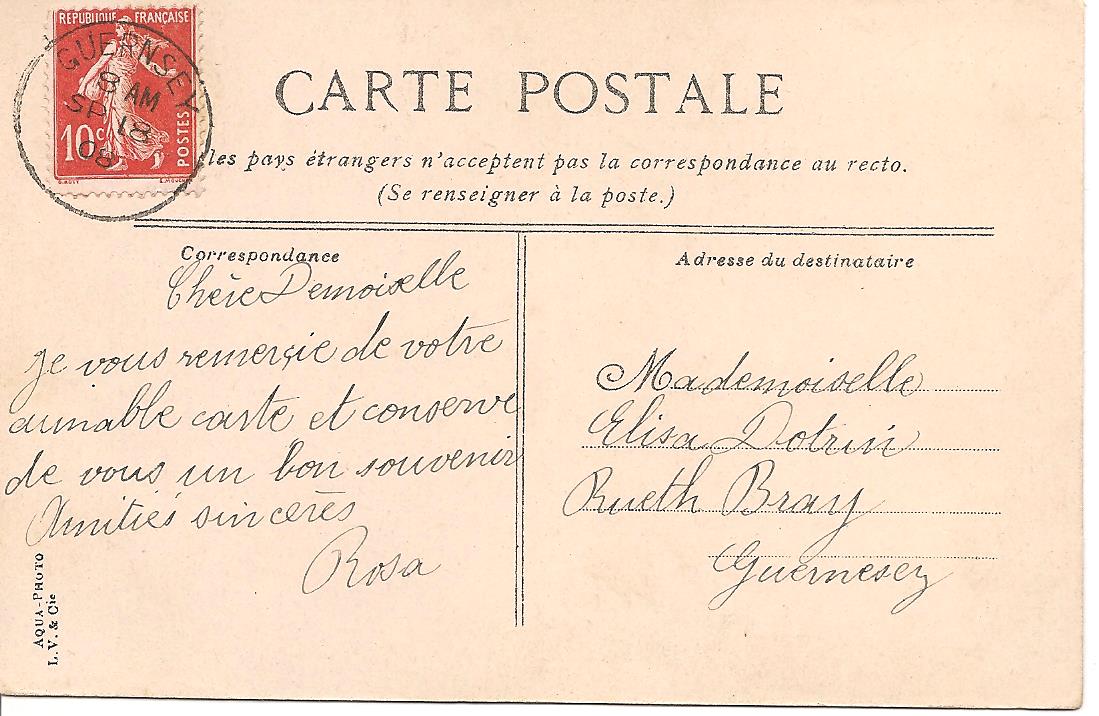 REPUBLIQUE FRANÇAISE
10c POSTES
GUERNSEY
8 AM
SP 18
08
CARTE POSTALE
les pays étrangers n'acceptent pas la correspondance au recto.
(Se renseigner à la poste.)
Correspondance
Chère Demoiselle
Je vous remerçie de votre
aimable carte et conserve
de vous un bon souvenir
Amitiés sincères
Rosa
AQUA-PHOTO
L.V. & Cie
Adresse du destinataire
Mademoiselle
Elisa Dotrin
Rueth Bray
Guernesey